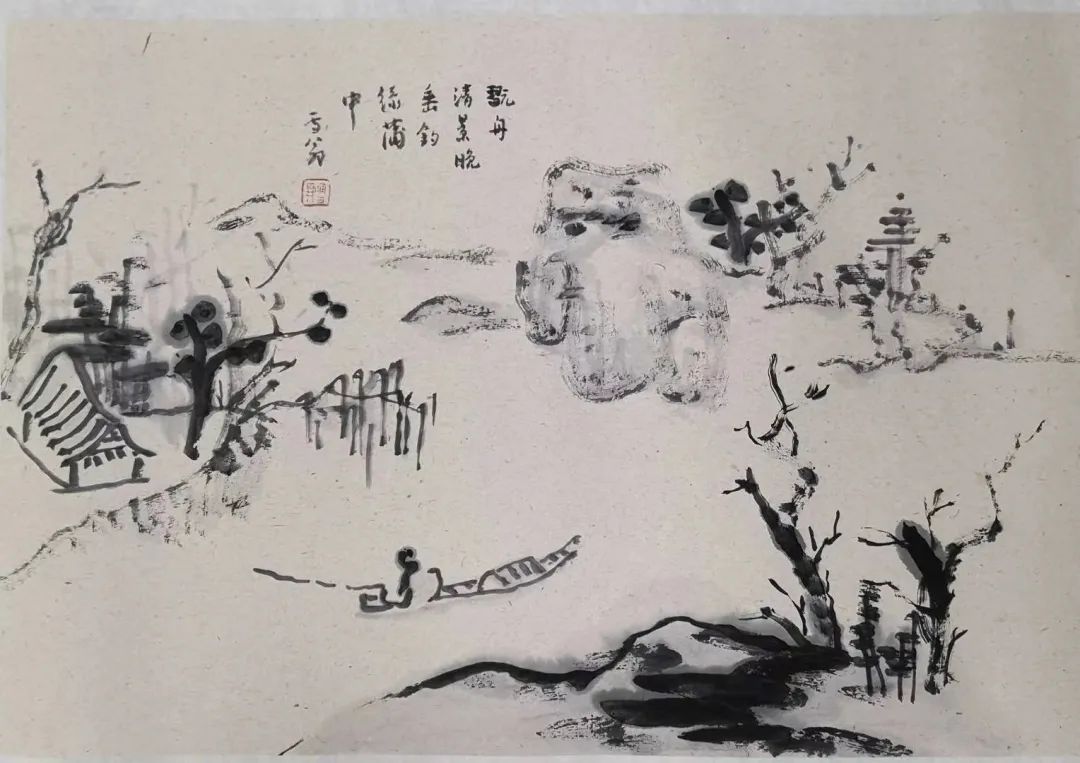 翫舟
清景晚
垂釣
綠蒲
中
雪翁